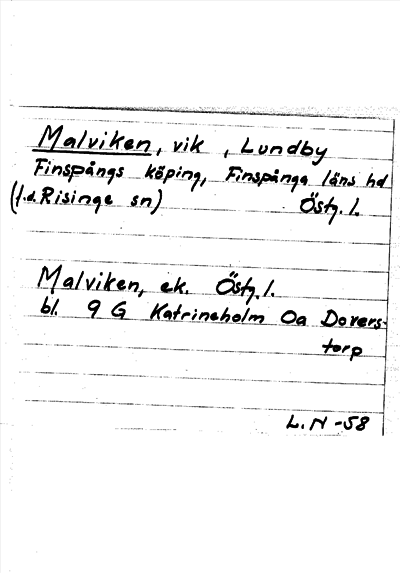 Malviken, vik , Lundby
Finspångs köping, Finspånga läns hd
(f.d. Risinge sn) Östg. l.
Malviken, ek. Östg. l.
bl. 9 G Katrineholm Oa Dovers-
torp
L.N -58